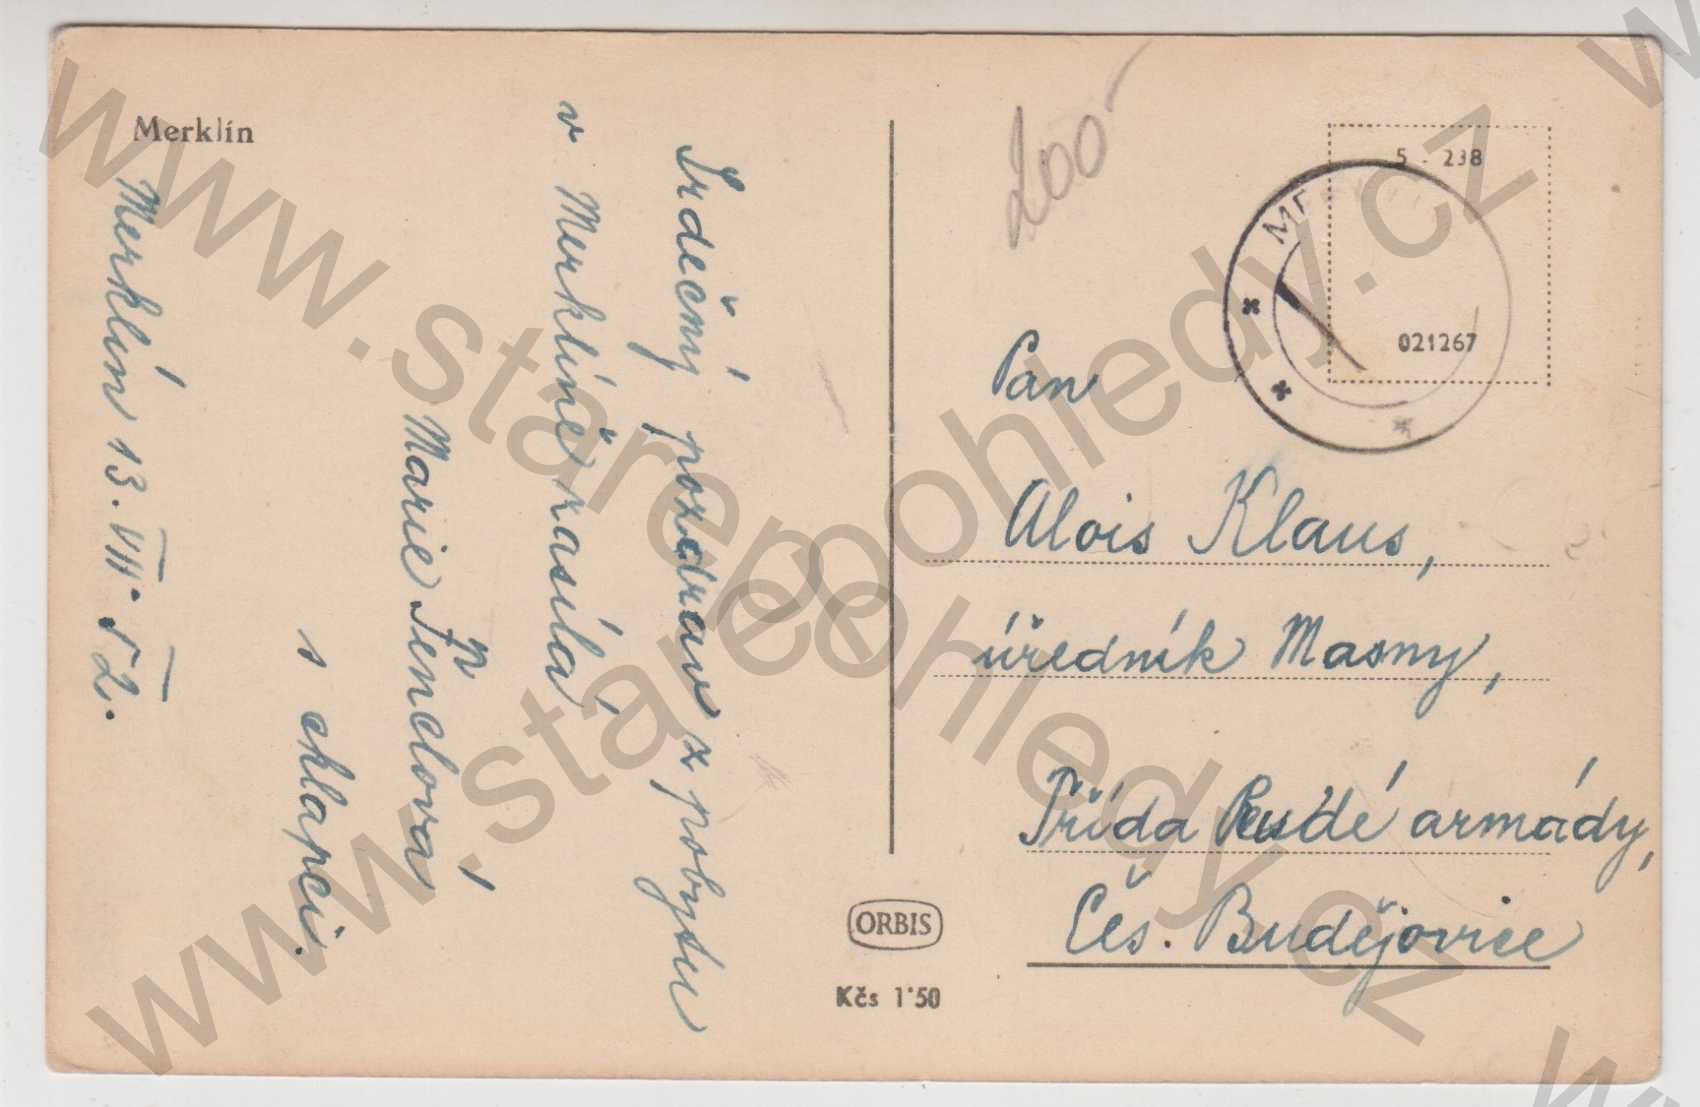 Merklín
Merklín 13. VII. 52.
Srdečný pozdrav z pobytu
v Merklíně zasílá
Marie Fenclová
s chlapci.
200-
5 - 238
021267
Pan
Alois Klaus,
úředník Masny,
Třída Rudé armády,
Čes. Budějovice
ORBIS
Kčs 1·50
www.starepohledy.cz
www.starepohledy.cz